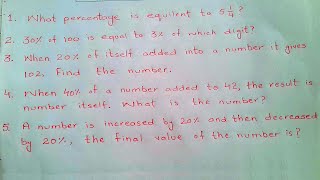 1. What percentage is equilent to 5 1/4?
2. 30% of 100 is equal to 3% of which digit?
3. When 20% of itself added into a number it gives
102. Find the number.
4. When 40% of a number added to 42, the result is
number itself. What is the number?
5. A number is increased by 20% and then decreased
by 20%, the final value of the number is?